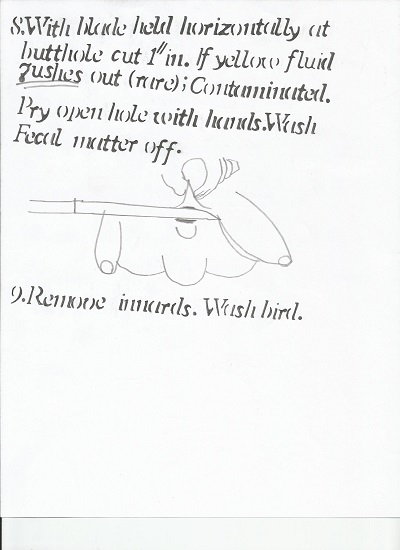 8.With blade held horizontally at
butthole cut 1" in. If yellow fluid
gushes out (rare); Contaminated.
Pry open hole with hands.Wash
Fecal matter off.
9.Remove innards. Wash bird.